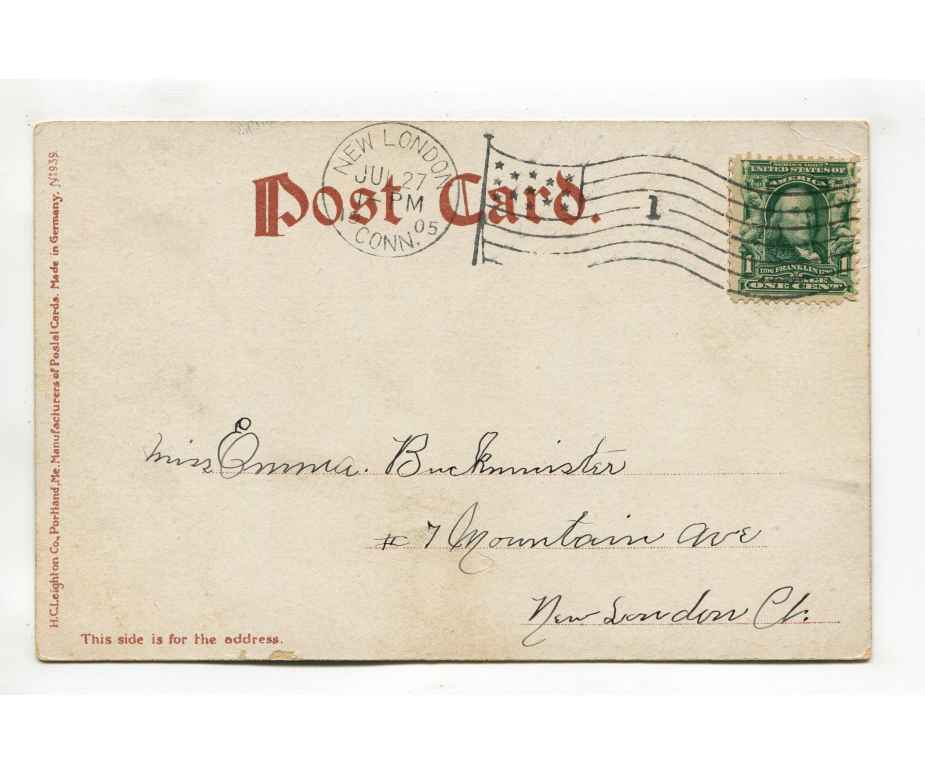 H.C.Leighton Co., Portland, Me. Manufacturers of Postal Cards. Made in Germany. No 939.
Post Card.
NEW LONDON
JUL 27
PM
05
CONN.
1
UNITED STATES OF
AMERICA
1 FRANKLIN 1
POSTAGE
ONE CENT
Miss Emma. Buckminster
# 7 Mountain Ave
New London Ct.
This side is for the address.